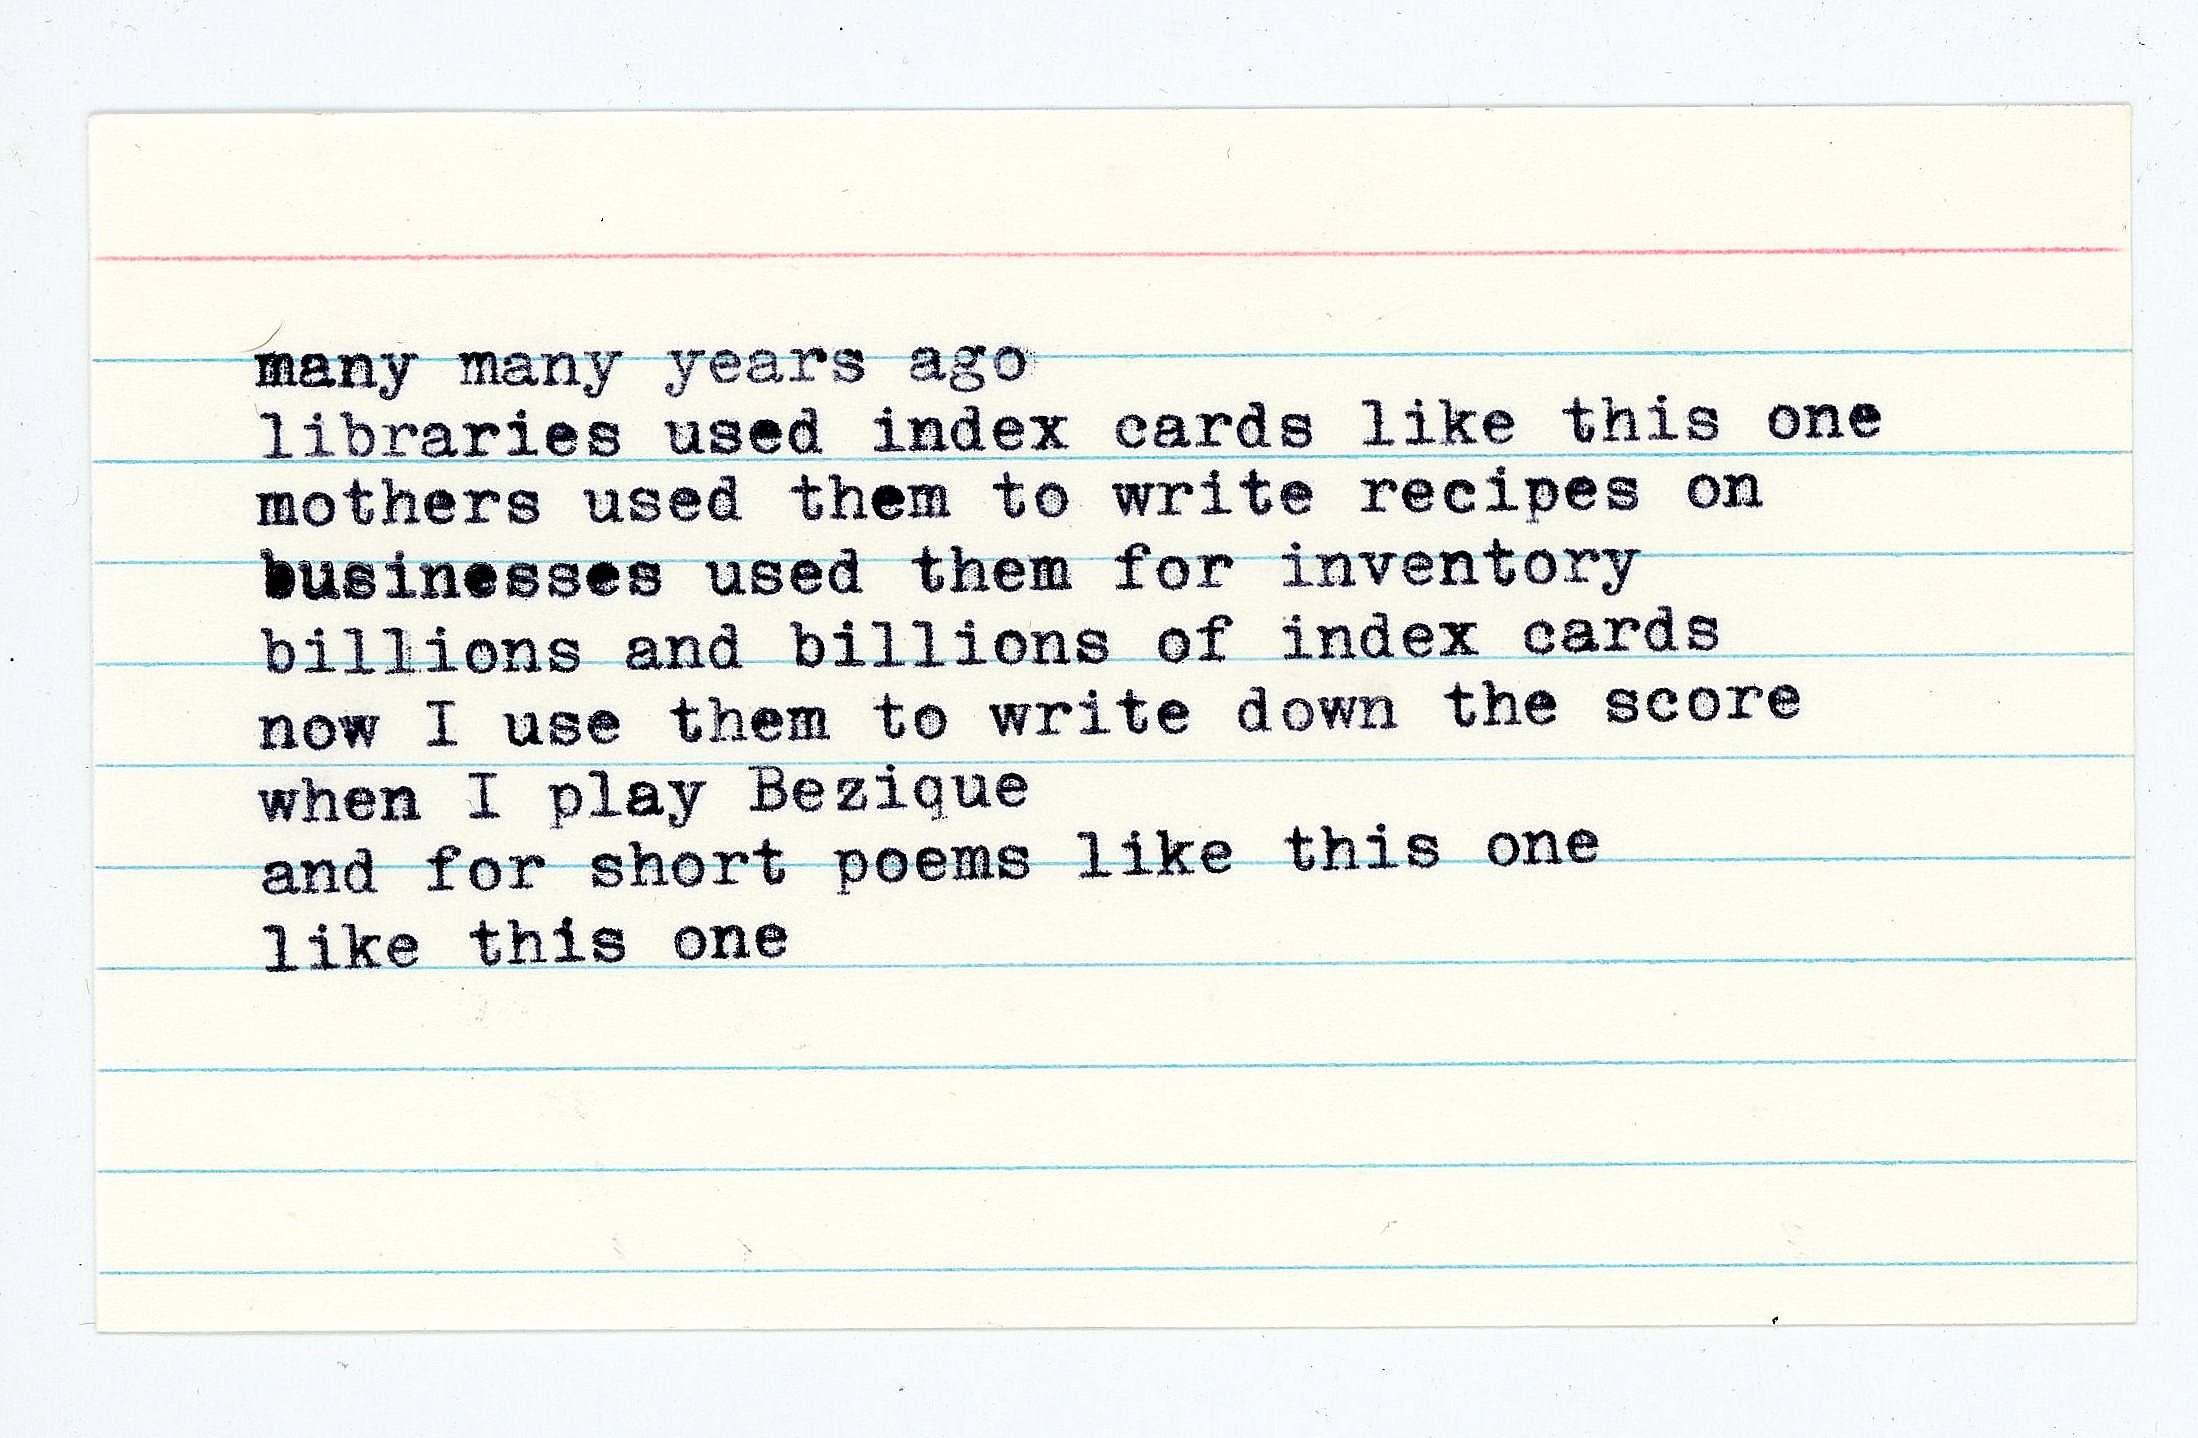 many many years ago
libraries used index cards like this one
mothers used them to write recipes on
businesses used them for inventory
billions and billions of index cards
now I use them to write down the score
when I play Bezique
and for short poems like this one
like this one